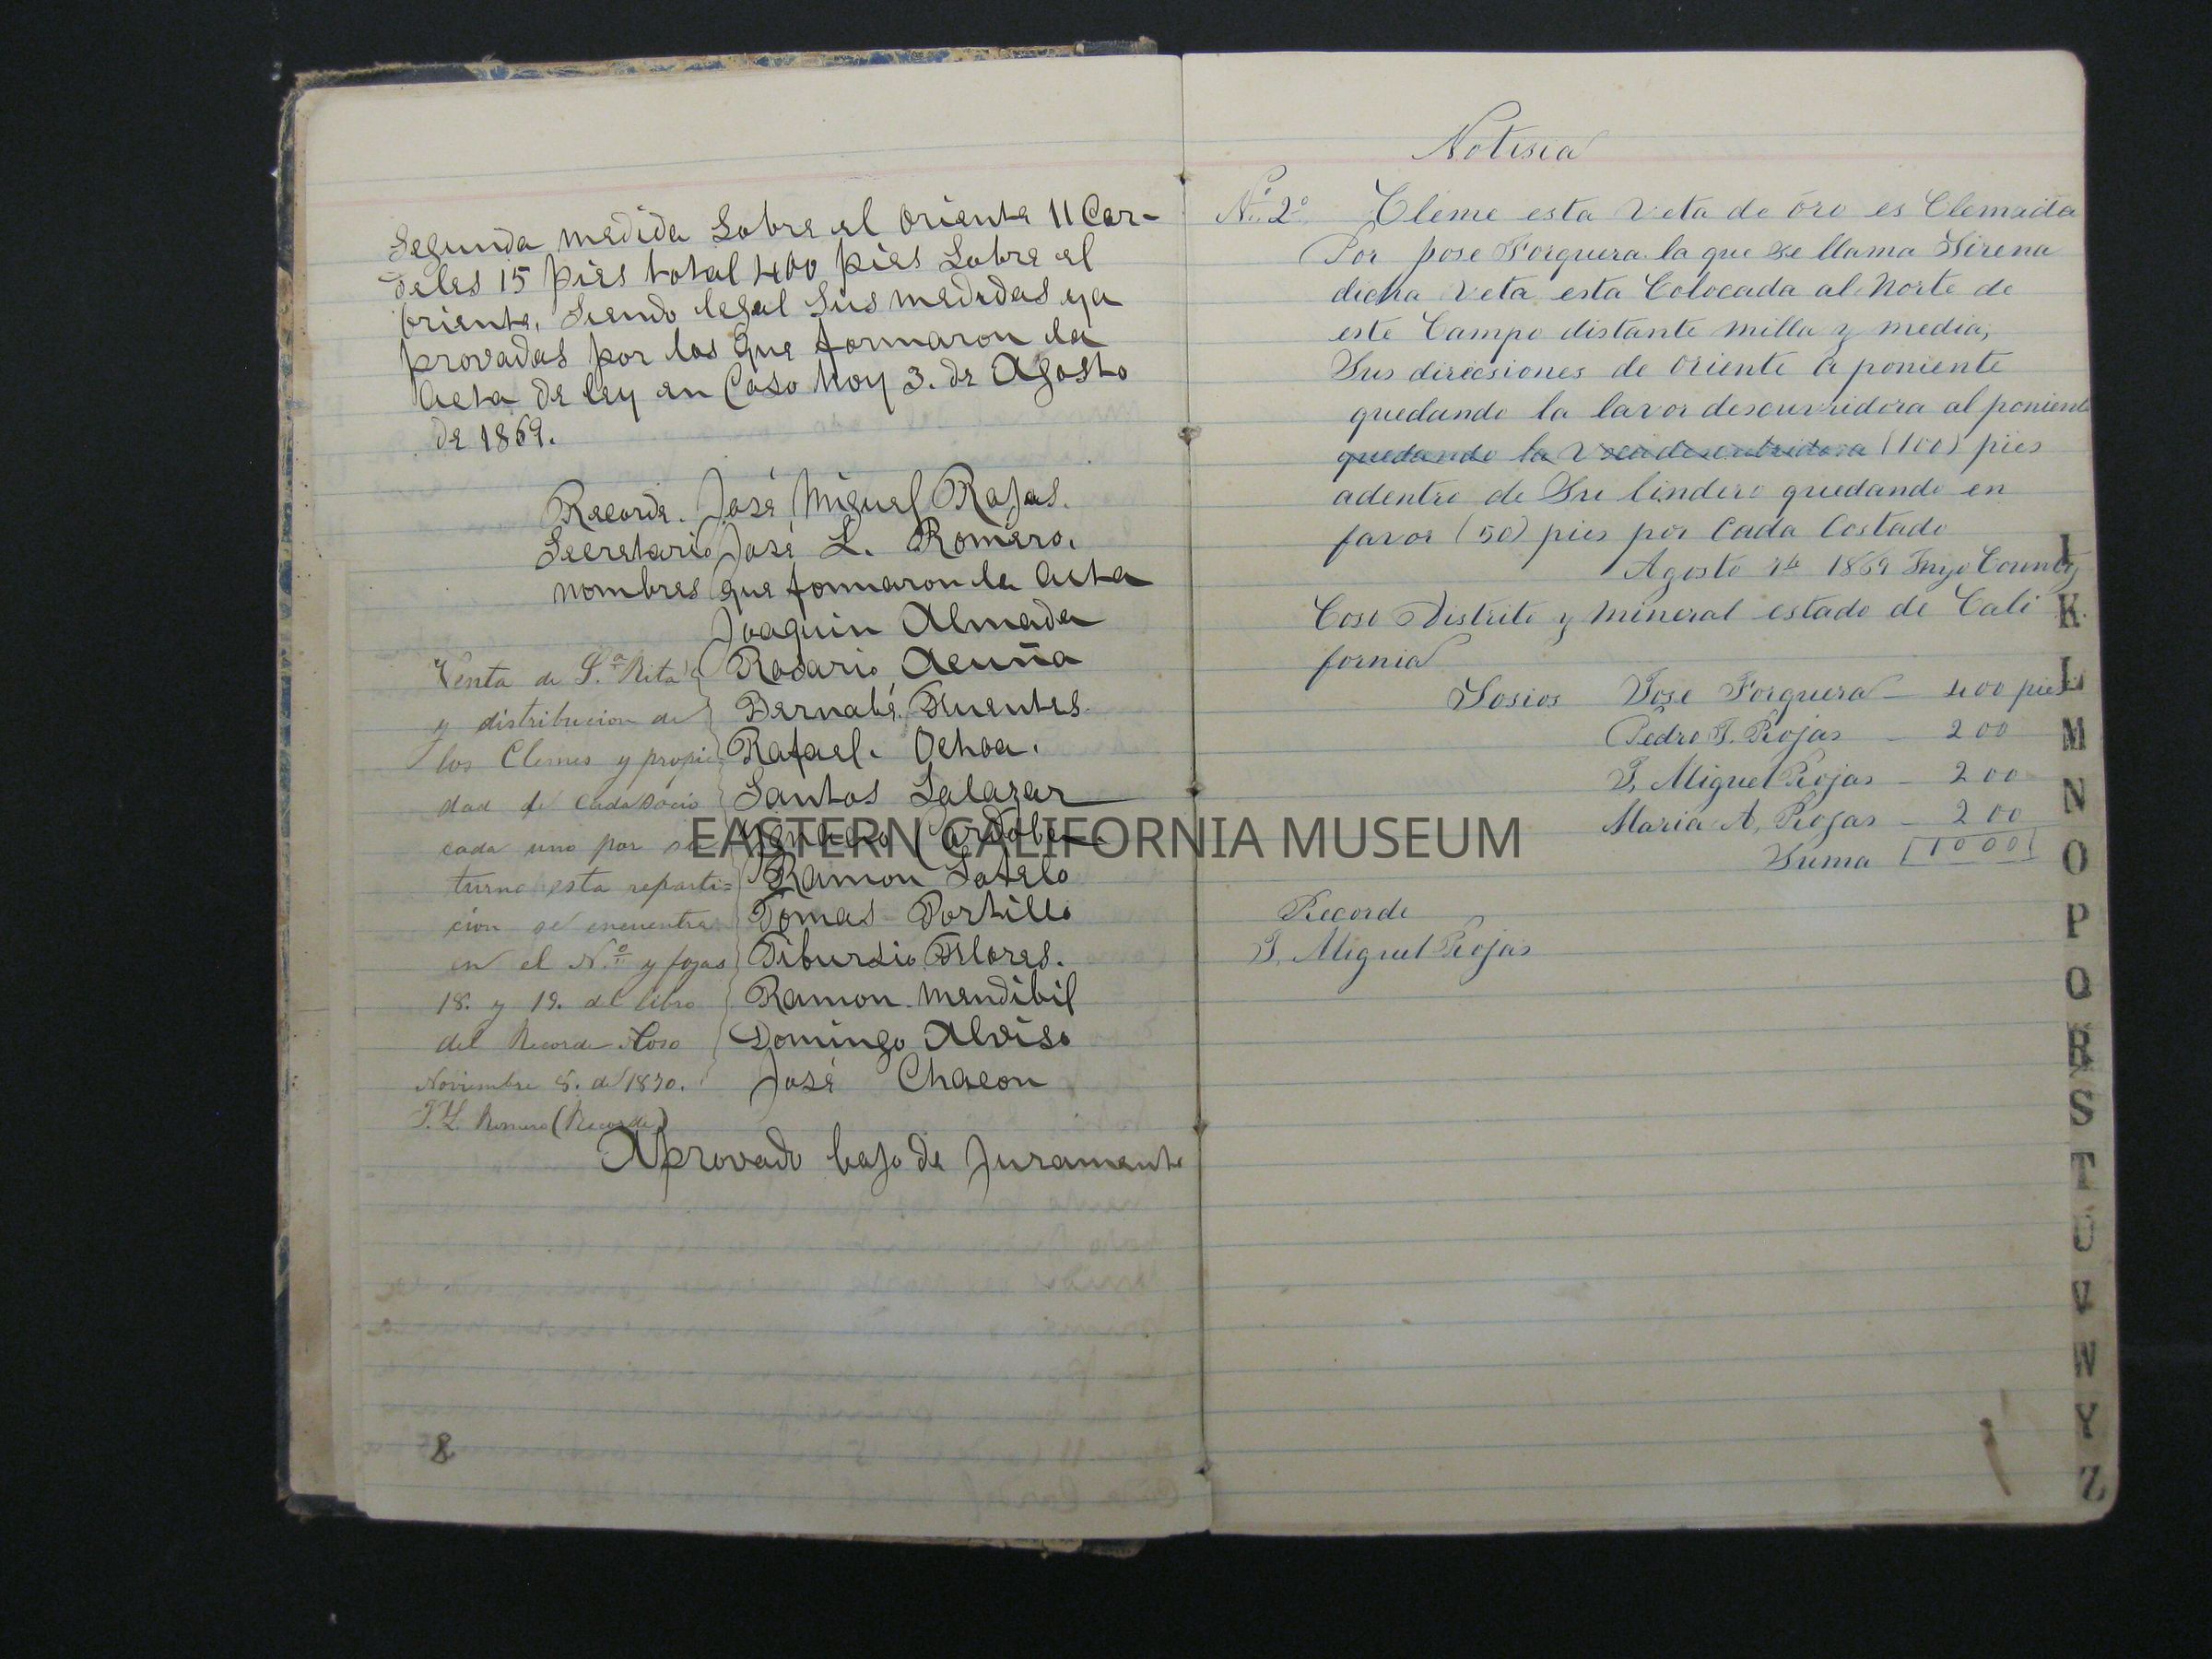 Segunda medida Sobre el Oriente 11 Cor-
deles 15 pies total 400 pies Sobre el
Oriente, Siendo legal Sus medidas y a
provadas por los que formaron la
Acta de ley en Coso Hoy 3. de Agosto
de 1869.
Recorde. José Miguel Rojas.
Secretario José L. Romero.
nombres que formaron la Acta
Joaquin Almada
Rosario Acuña
Bernabé Fuentes.
Rafael. Ochoa.
Santos Salazar
Cordoba
Ramon Sotelo
Tomas Portillo
Tibursio Flores.
Ramon Mendibil
Domingo Alviso
José Chacon
Venta de S.ta Rita
y distribucion de
los Clemes y propie
dad de cada socio
cada uno por su
turno esta reparti=
cion se encuentra
en el N.º 11 y fojas
18. y 19. del libro
del Recorde Coso
Noviembre 5. de 1870.
J. L. Romero (Recorde)
Aprovado bajo de Juramento
8
Notisia
N.º 2º Cleme esta Veta de oro es Clemada
Por Jose Forquera la que se llama Sirena
dicha Veta esta Colocada al Norte de
este Campo distante milla y media,
Sus direcsiones de Oriente a poniente
quedando la lavor descuvridora al poniente
quedando la descubridora (100) pies
adentro de Su lindero quedando en
favor (50) pies por Cada Costado
Agosto 1869 Inyo County
Coso Distrito y Mineral estado de Cali
fornia
Sosios Jose Forquera — 400 pies
Pedro J. Rojas — 200
J. Miguel Rojas — 200
Maria A, Rojas — 200
Suma 1000
Recorde
J. Miguel Rojas
I
K
L
M
N
O
P
Q
R
S
T
U
V
W
Y
Z
EASTERN CALIFORNIA MUSEUM